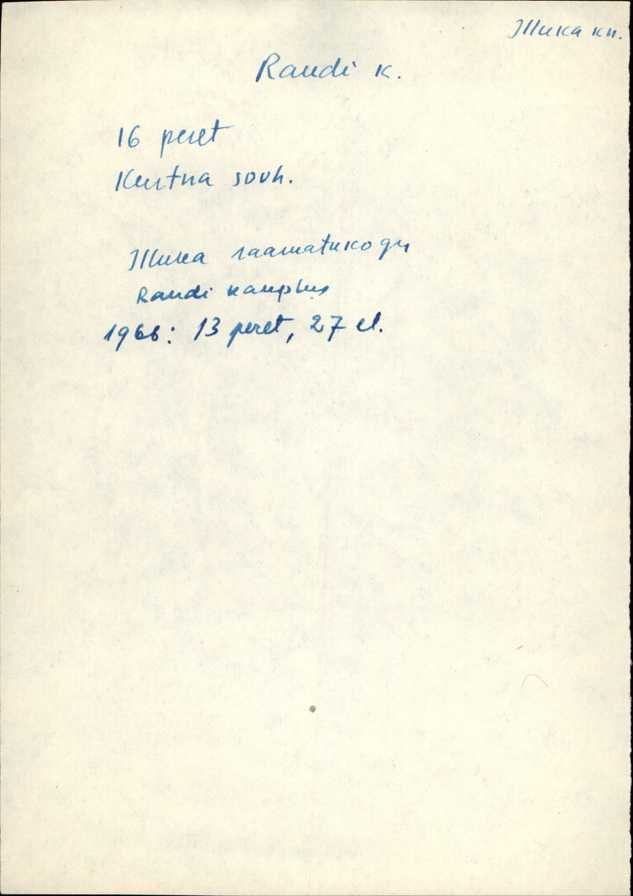 Illuka kn.
Raudi k.
16 peret
Kurtna sovh.
Illuka raamatukogu
Raudi kauplus
1966: 13 peret, 27 el.